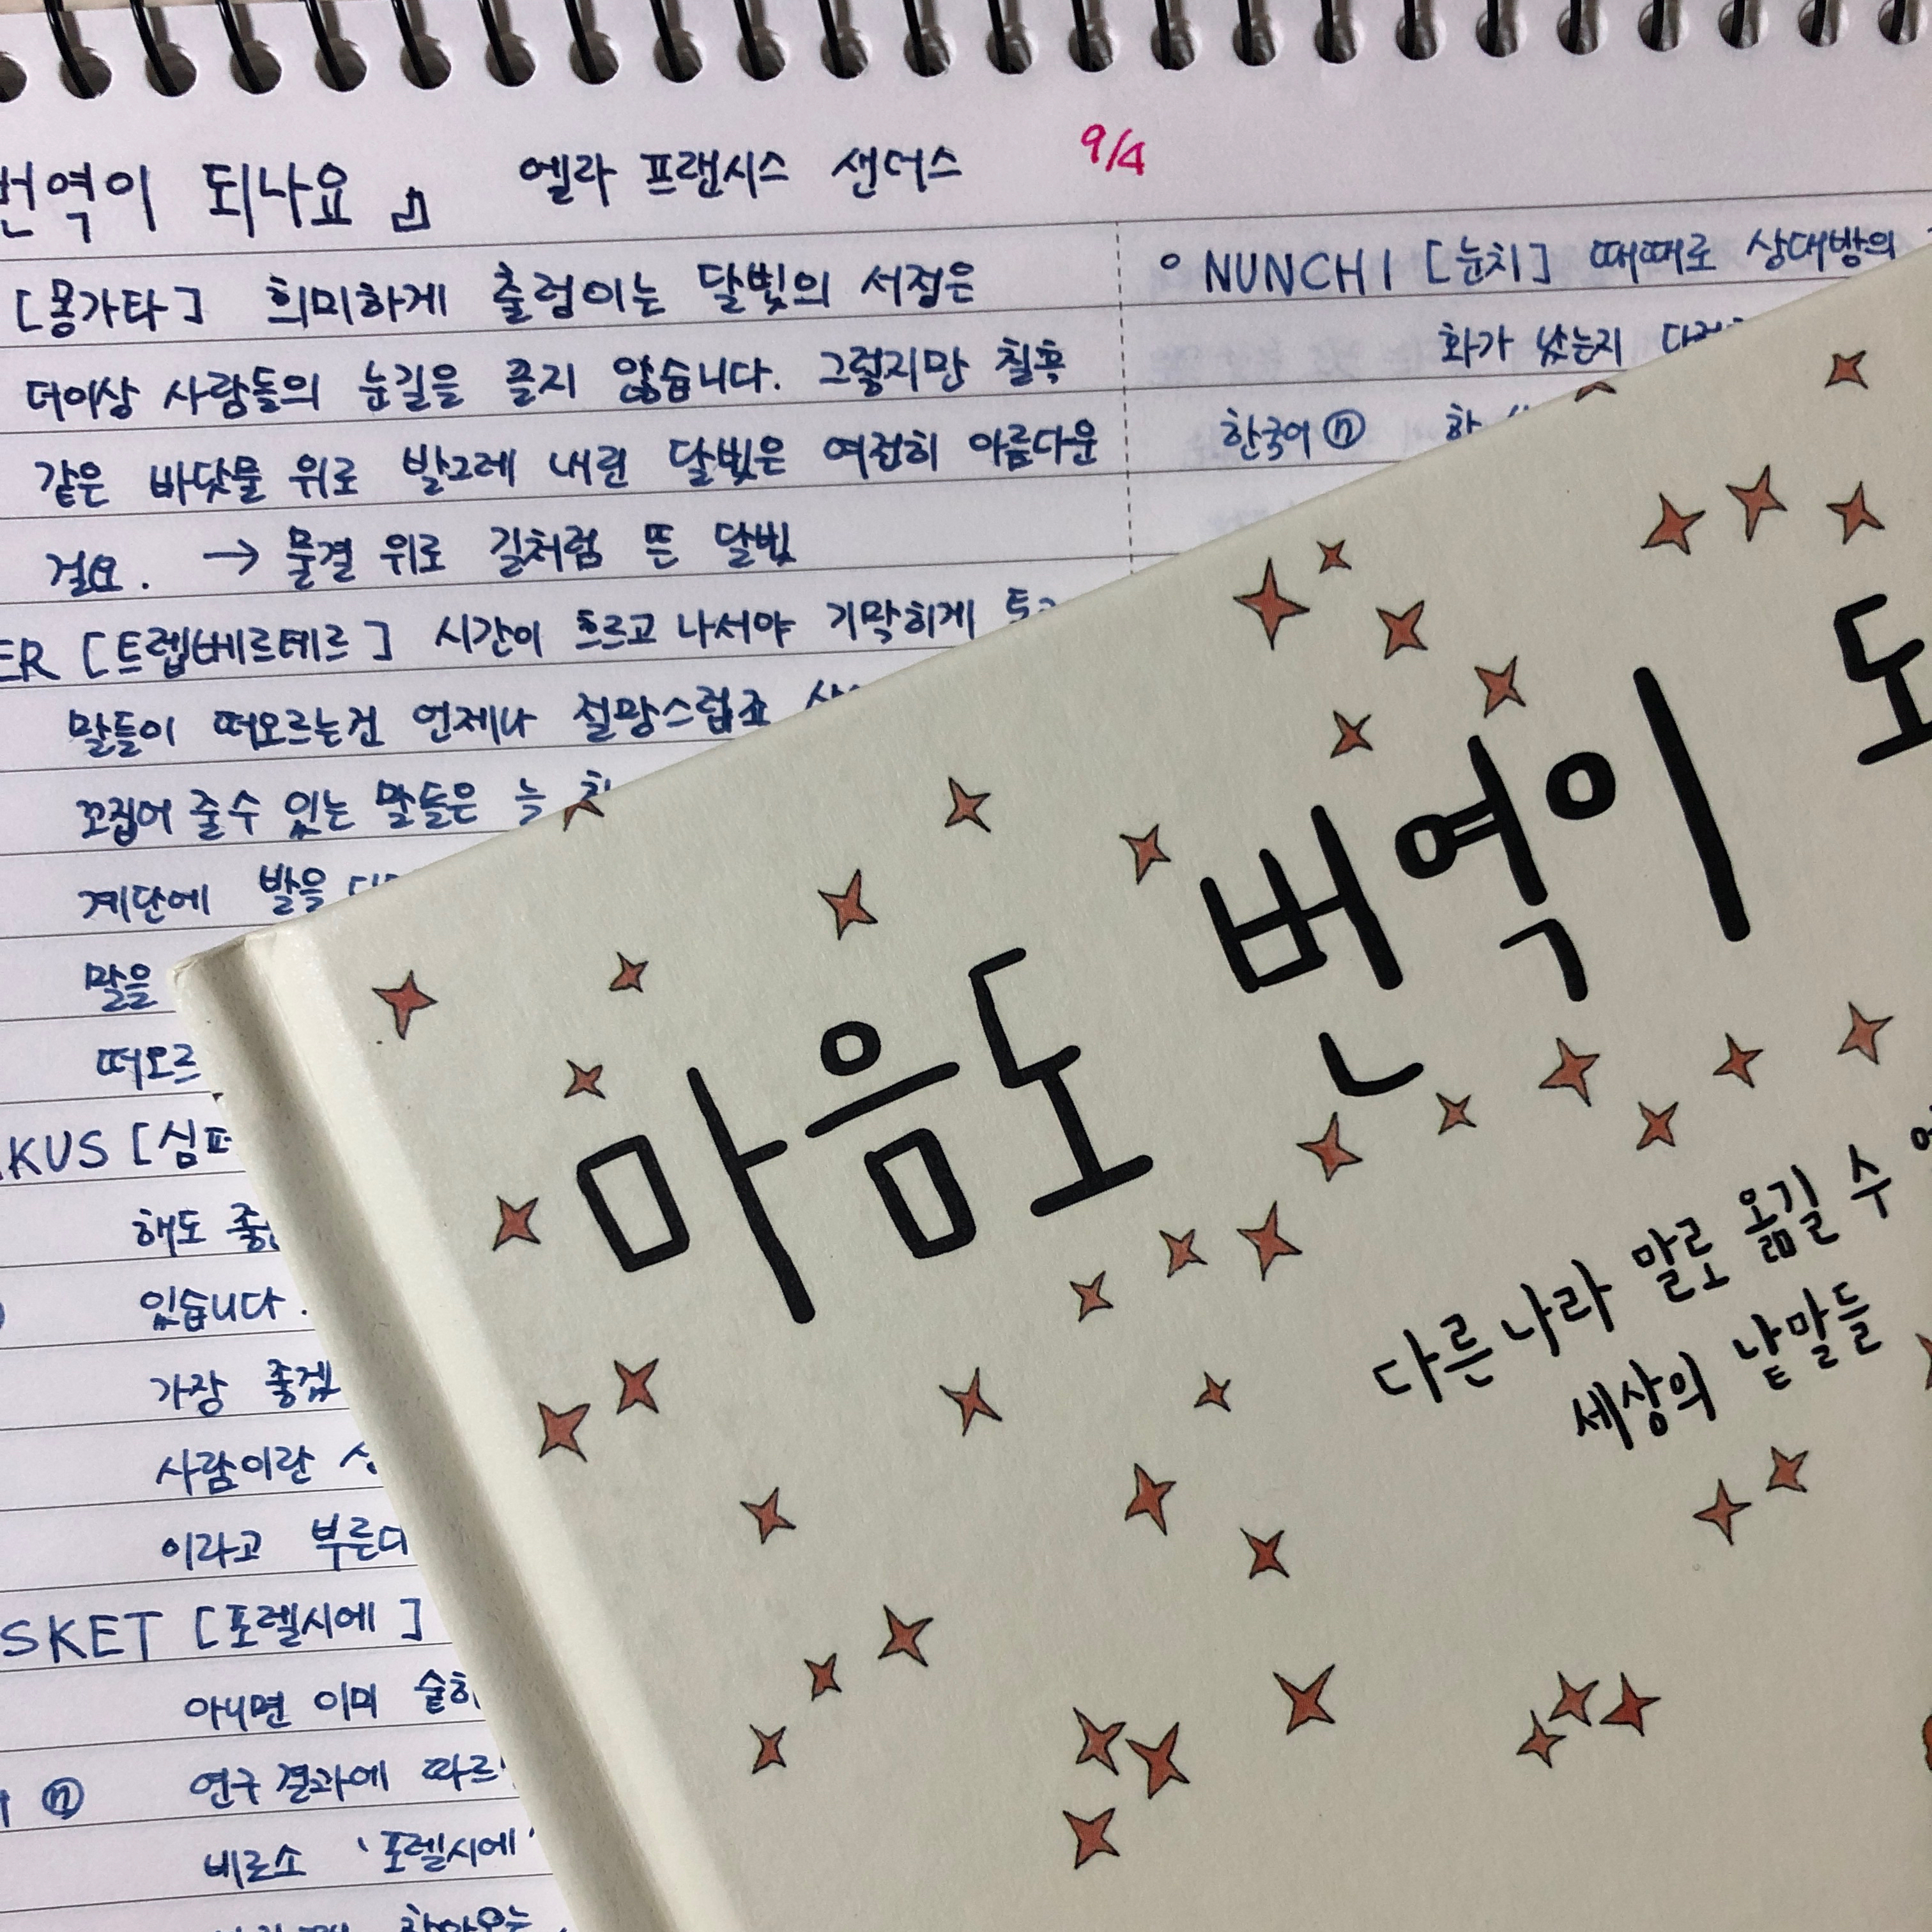 번역이 되나요 』 엘라 프랜시스 샌더스 9/4
[몽가타] 희미하게 출렁이는 달빛의 서정은
더이상 사람들의 눈길을 끌지 않습니다. 그렇지만 칠흑
같은 바닷물 위로 발그레 내린 달빛은 여전히 아름다운
걸요. → 물결 위로 길처럼 뜬 달빛
ER [트렙베르테르] 시간이 흐르고 나서야 기막히게
말들이 떠오르는건 언제나 절망스럽죠
꼬집어 줄수 있는 말들은 늘
계단에 발을
말을
떠오르
KUS [심파
해도
있습니다.
가장 좋겠
사람이란
이라고 부른다
SKET [포렐시에]
아니면 이미
ⓝ 연구결과에 따르
비로소 '포렐시에'
찾아오는
○ NUNCHI [눈치] 때때로 상대방의
화가 났는지
한국어 ⓝ 한
마음도 번역이 되
다른 나라 말로 옮길 수
세상의 낱말들